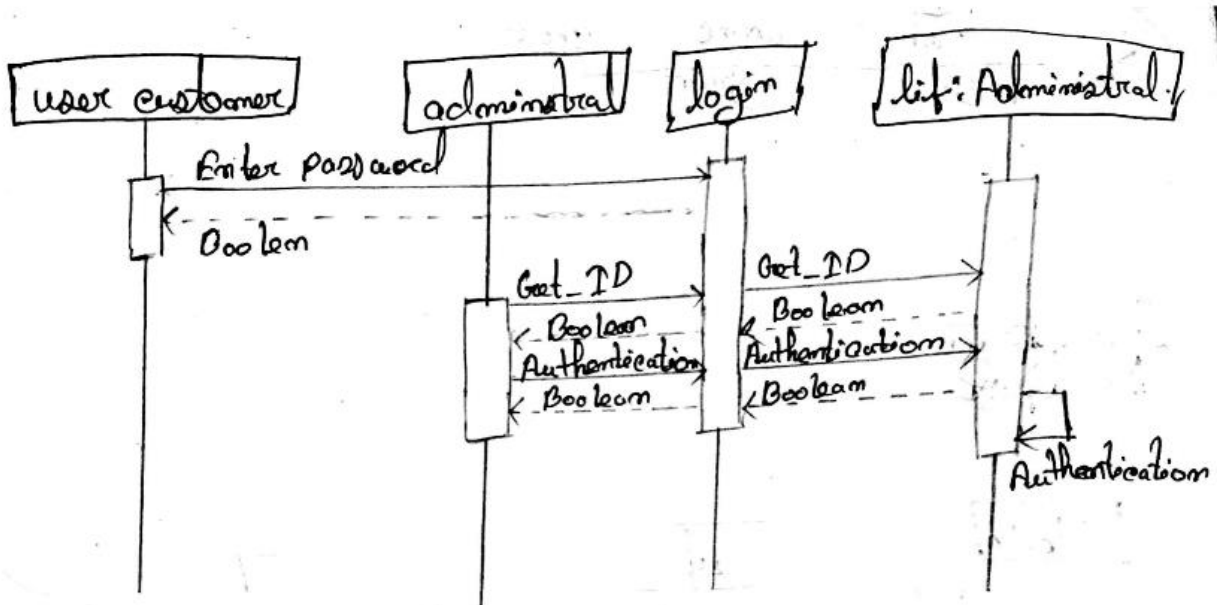 user customer
administral
login
lif: Administral.
Enter password
Boolean
Get_ID
Get_ID
Boolean
Boolean
Authentication
Authentication
Boolean
Boolean
Authentication